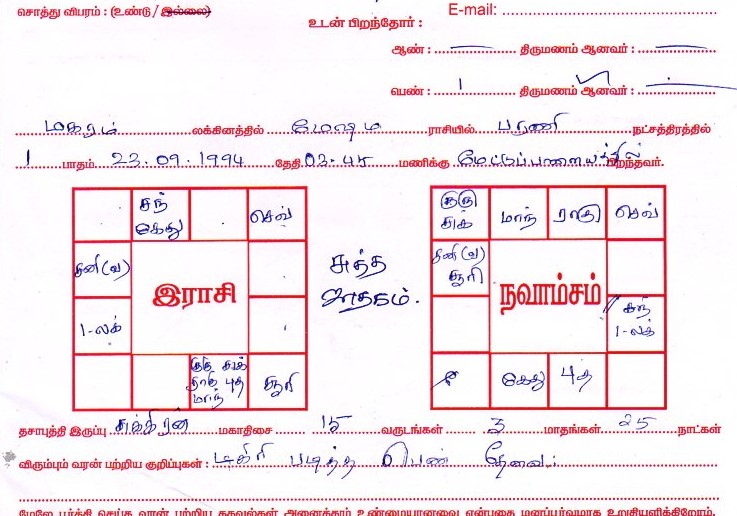 சொத்து விபரம் : (உண்டு / இல்லை)
E-mail:
உடன் பிறந்தோர் :
ஆண் : திருமணம் ஆனவர் :
பெண் : 1 திருமணம் ஆனவர் :
மகரம் லக்கினத்தில் மேஷம் ராசியில் பரணி நட்சத்திரத்தில்
1 பாதம் 23.09.1994 தேதி 02.45 மணிக்கு மேட்டுப்பாளையத்தில் பிறந்தவர்.
சந் கேது செவ்
சனி(வ)
இராசி
1-லக்
குரு சுக் ராகு புத மாந் சூரி
சுத்த ஜாதகம்.
குரு சுக் மாந் ராகு செவ்
சனி(வ) சூரி
நவாம்சம்
சந் 1-லக்
கேது புத
தசாபுத்தி இருப்பு சுக்கிரன் மகாதிசை 15 வருடங்கள் 3 மாதங்கள் 25 நாட்கள்
விரும்பும் வரன் பற்றிய குறிப்புகள் : டிகிரி படித்த பெண் தேவை.
மேலே பூர்த்தி செய்த வரன் பற்றிய தகவல்கள் அனைத்தும் உண்மையானவை என்பதை மனப்பூர்வமாக உறுதியளிக்கிறோம்.